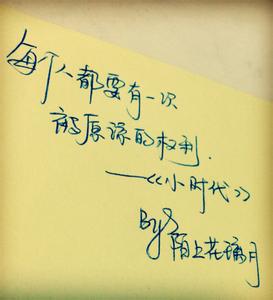 每个人都要有一次
被原谅的权利.
——《小时代》
By:
陌上花璃月